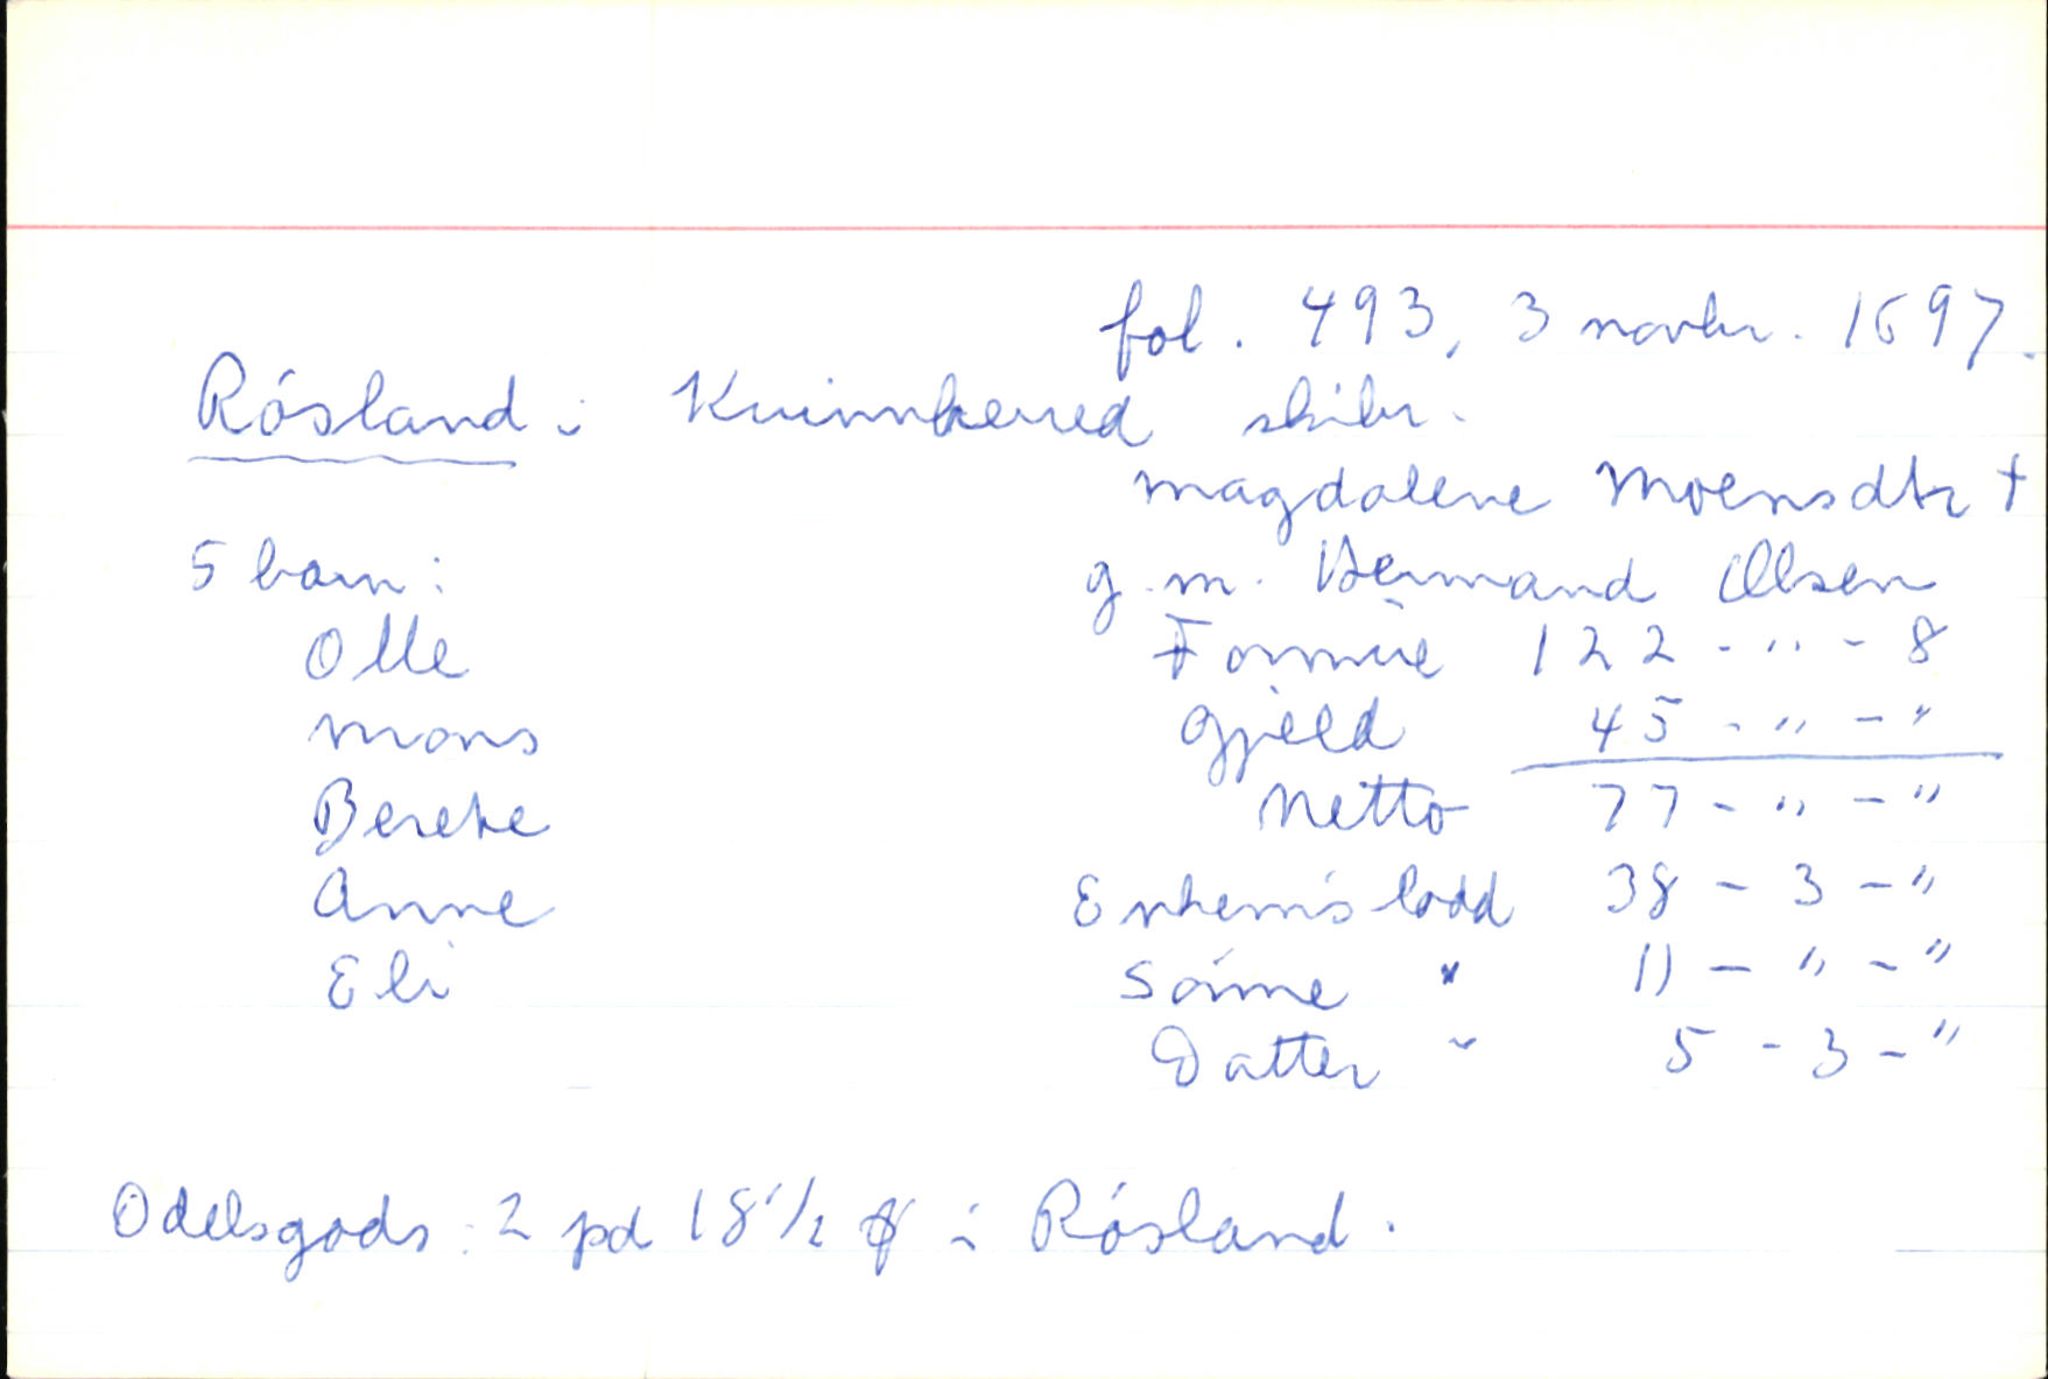 fol. 493, 3 novbr. 1697.
Rósland i Kvinnherred skibr.
Magdalene Moensdtr †
5 barn: g.m. Vermand Olsen
Olle Formue 122 - " - 8
Mons Gjeld 45 - " - "
Berete Netto 77 - " - "
Anne Enkem's lodd 38 - 3 - "
Eli Sønne " 11 - " - "
Datter " 5 - 3 - "
Odelsgods: 2 pd 18 1/2 i Rósland.